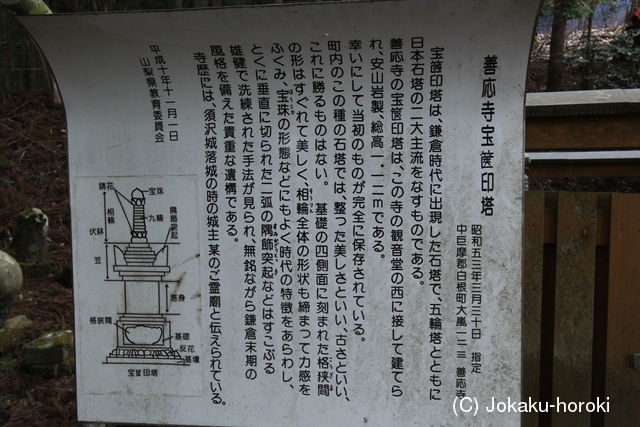 善応寺宝篋印塔
昭和五三年三月三十日 指定
中巨摩郡白根町大嵐一二三 善応寺
宝篋印塔は、鎌倉時代に出現した石塔で、五輪塔とともに
日本石塔の二大主流をなすものである。
善応寺の宝篋印塔は、この寺の観音堂の西に接して建てら
れ、安山岩製、総高一.一二mである。
幸いにして当初のものが完全に保存されている。
町内のこの種の石塔では、整った美しさといい、古さといい、
これに勝るものはない。基礎の四側面に刻まれた格狭間
の形はすぐれて美しく、相輪全体の形状も締まって力感を
ふくみ、宝珠の形態などにもよく時代の特徴をあらわし、
とくに垂直に切られた二弧の隅飾突起などはすこぶる
雄健で洗練された手法が見られ、無銘ながら鎌倉末期の
風格を備えた貴重な遺構である。
寺歴には、須沢城落城の時の城主某のご霊廟と伝えられている。
平成十年十一月一日
山梨県教育委員会
宝珠
請花
九輪
相輪
隅飾突起
伏鉢
笠
塔身
格狭間
基礎
反花
基壇
宝篋印塔
(C) Jokaku-horoki